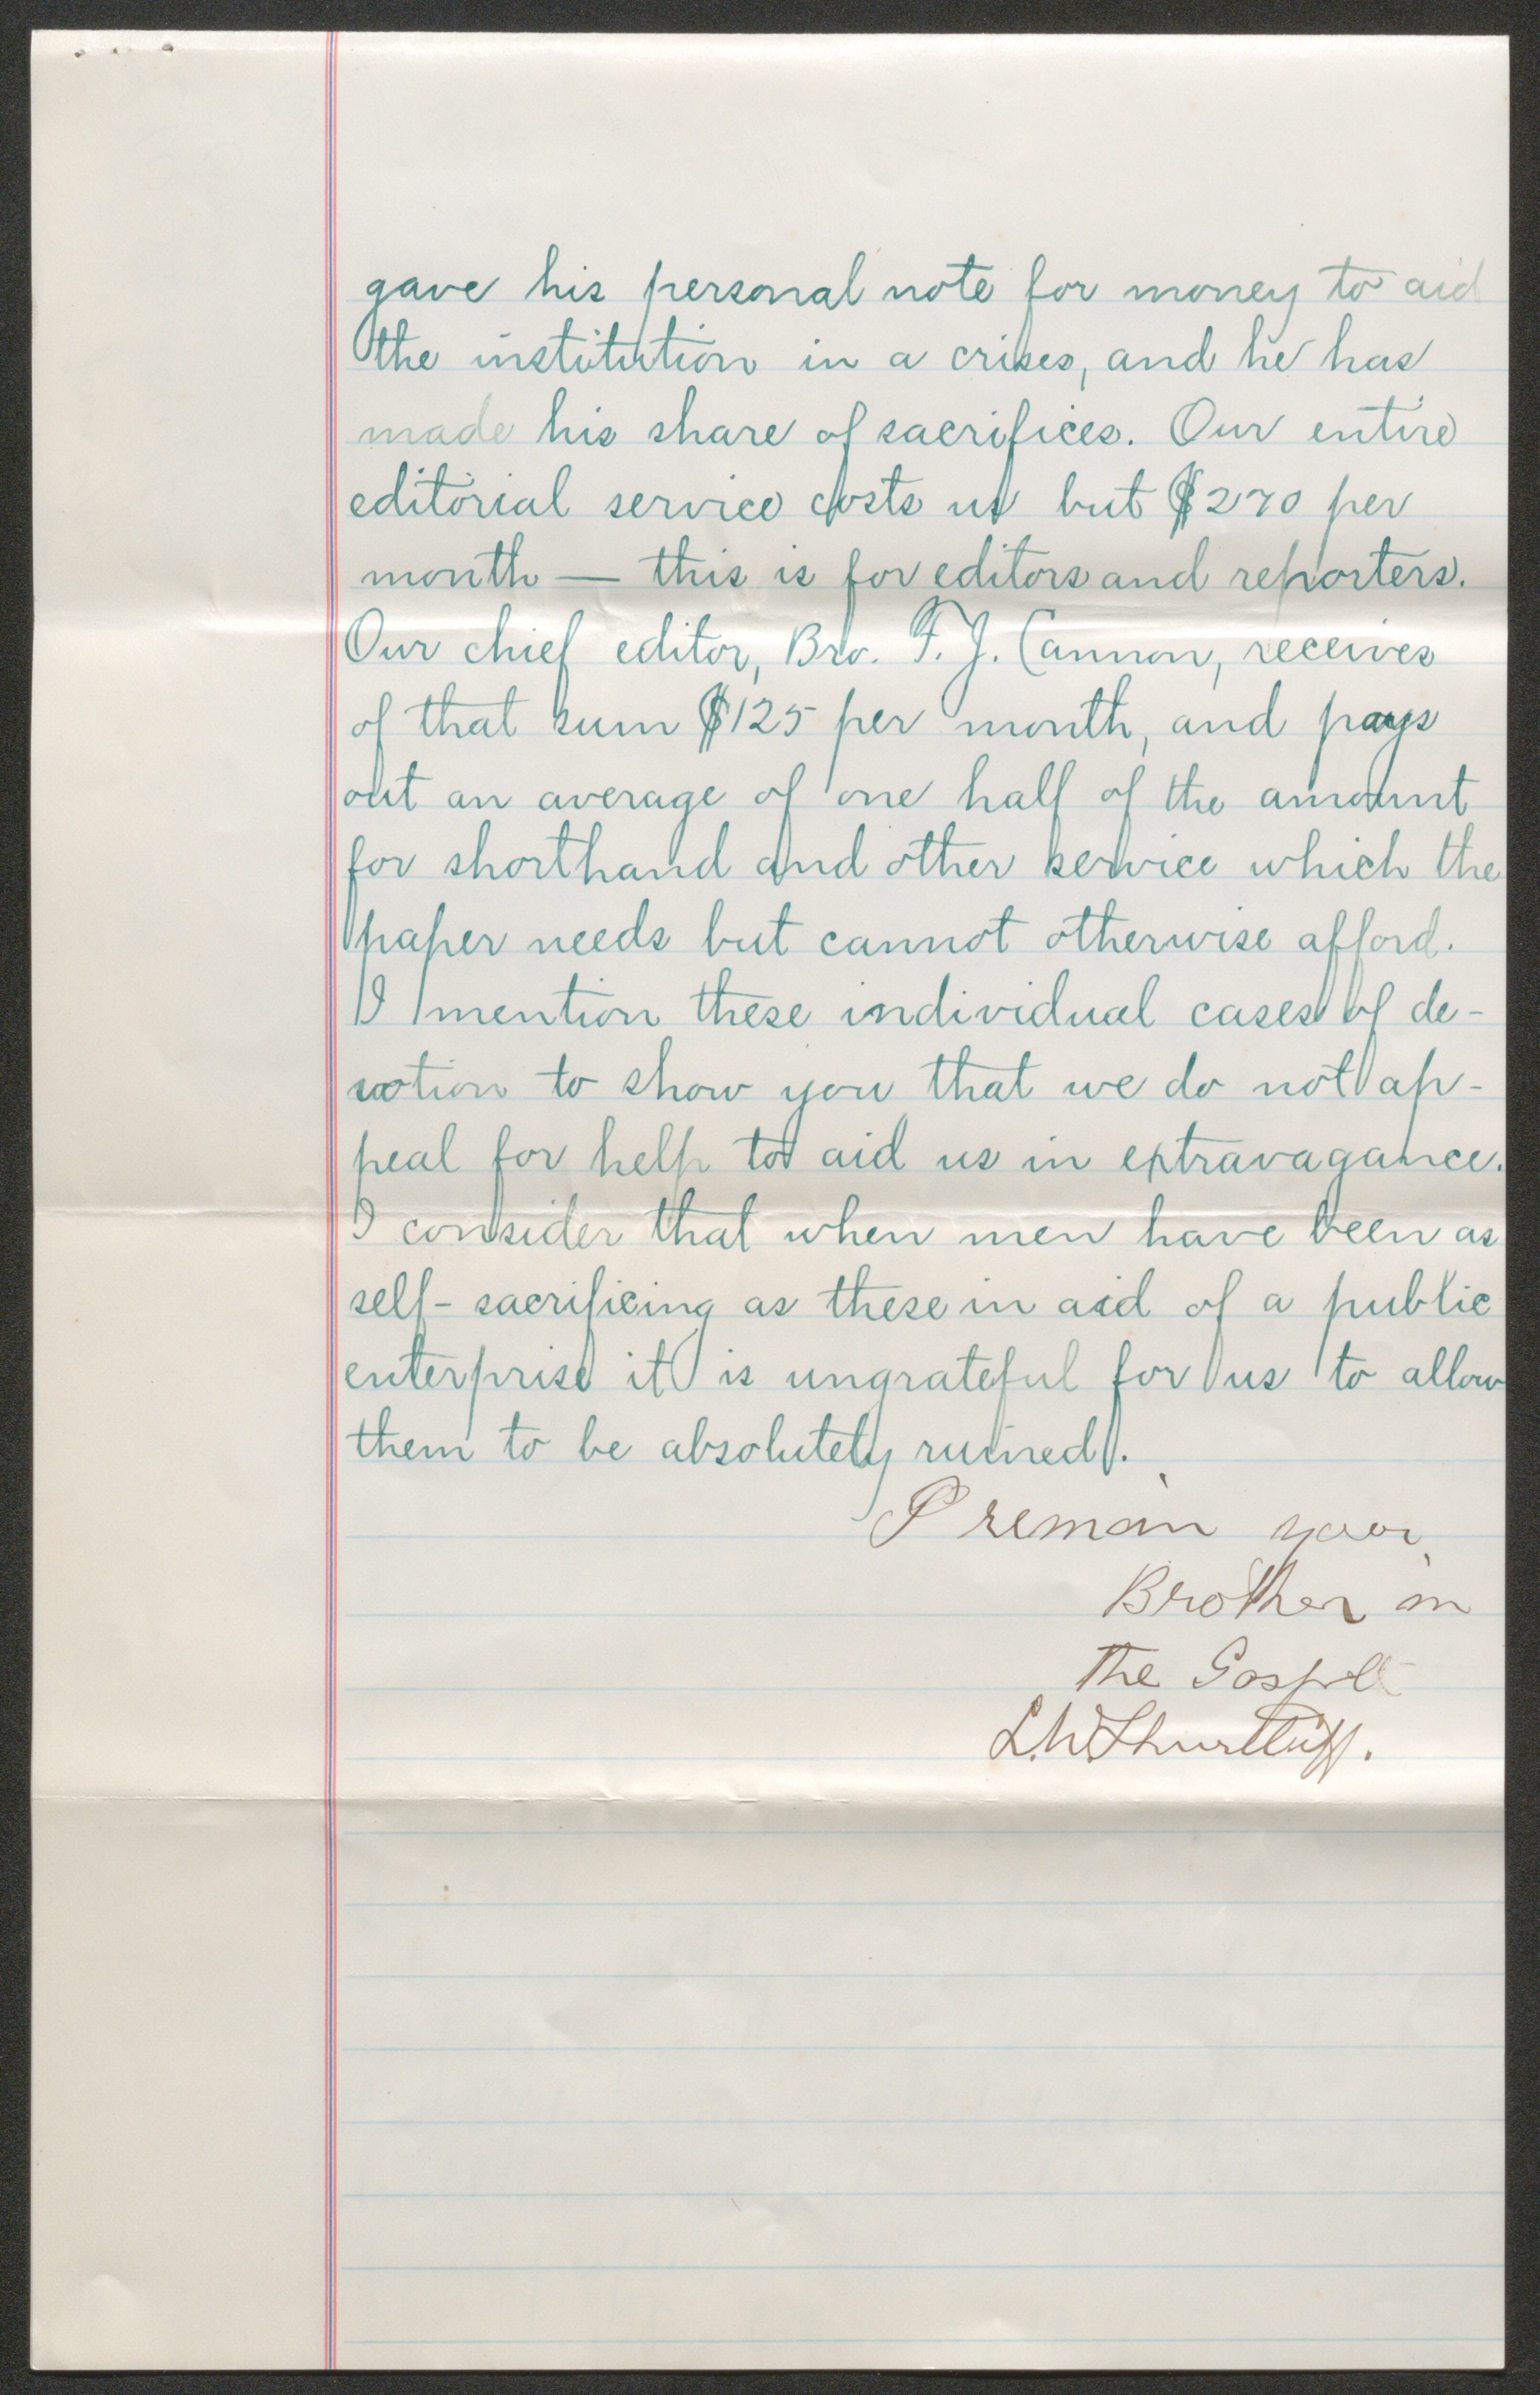 gave his personal note for money to aid
the institution in a crises, and he has
made his share of sacrifices. Our entire
editorial service costs us but $270 per
month — this is for editors and reporters.
Our chief editor, Bro. F. J. Cannon, receives
of that sum $125 per month, and pays
out an average of one half of the amount
for shorthand and other service which the
paper needs but cannot otherwise afford.
I mention these individual cases of de-
votion to show you that we do not ap-
peal for help to aid us in extravagance.
I consider that when men have been as
self-sacrificing as these in aid of a public
enterprise it is ungrateful for us to allow
them to be absolutely ruined.
I remain your
Brother in
the Gospel
L. W. Shurtliff.